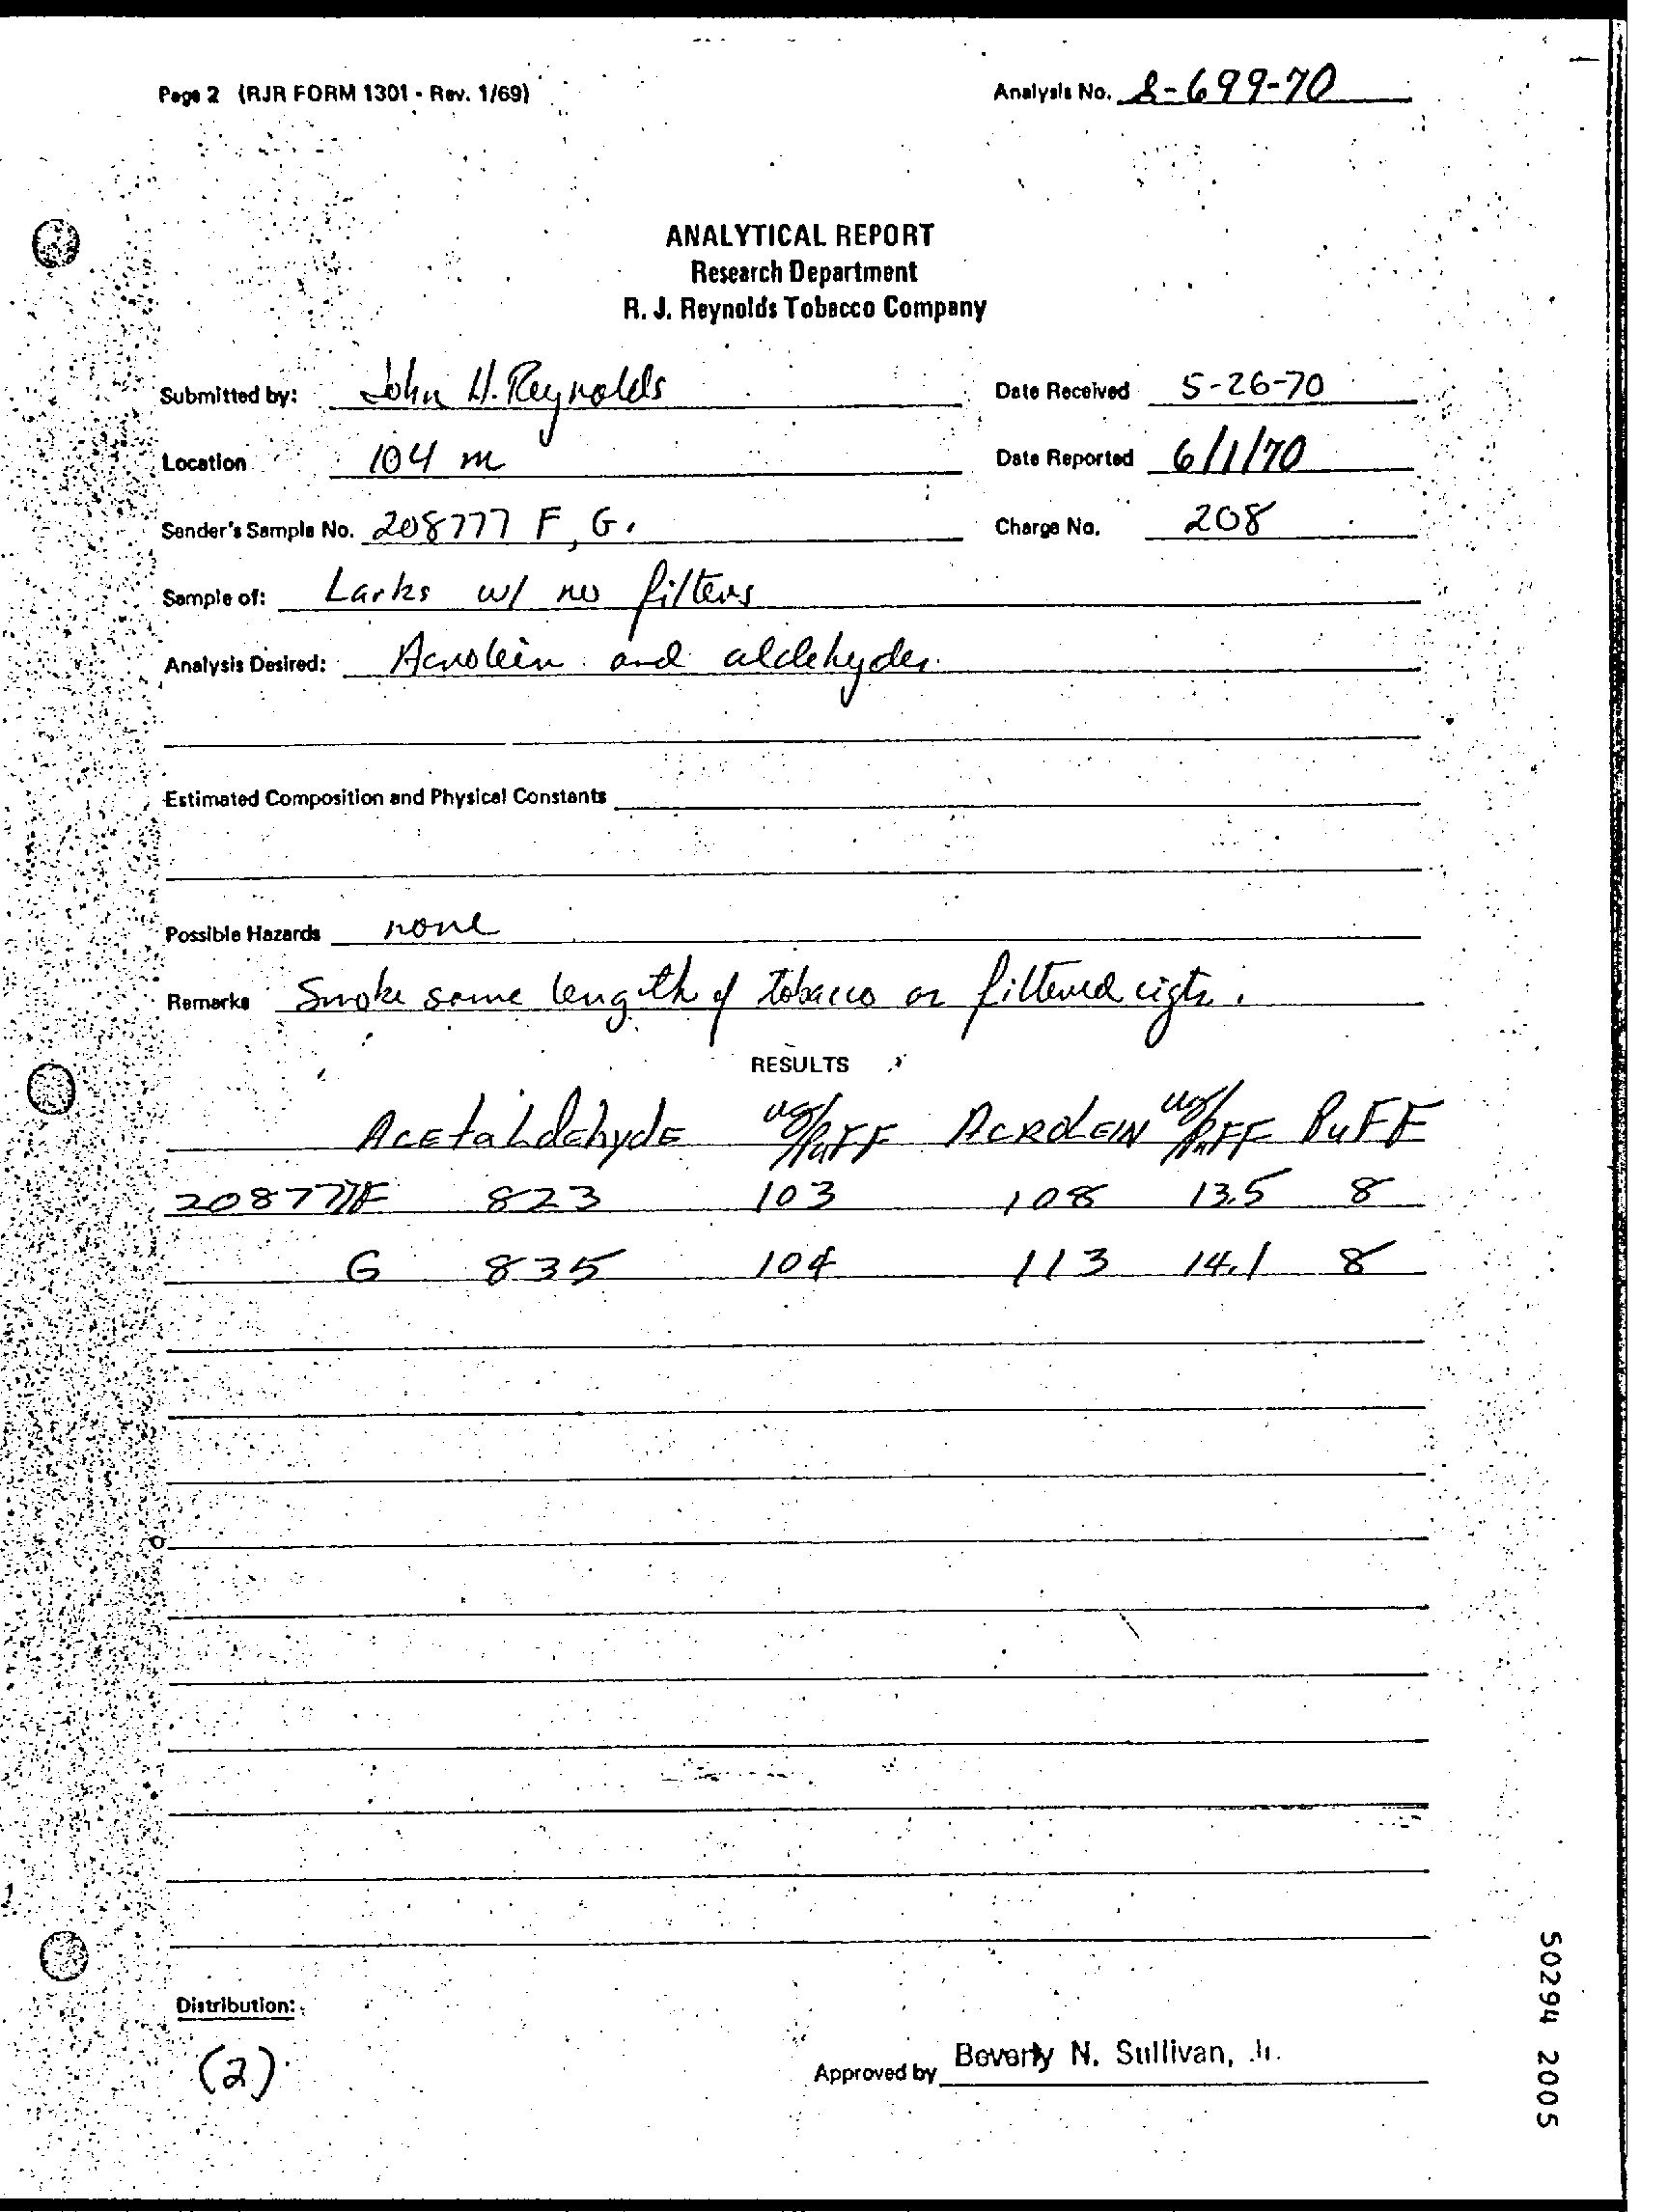 Page 2 (RJR FORM 1301 - Rev. 1/69)
Analysis No. S-699-70
ANALYTICAL REPORT
Research Department
R. J. Reynolds Tobacco Company
Submitted by: John H. Reynolds
Date Received 5-26-70
Location 104 m
Date Reported 6/1/70
Sender's Sample No. 208777 F, G.
Charge No. 208
Sample of: Larks w/ no filters
Analysis Desired: Acrolein and aldehydes.
Estimated Composition and Physical Constants
Possible Hazards none
Remarks Smoke same length of tobacco as filtered cigts.
RESULTS
AcEtaLdehyde ug/PuFF ACROLEIN ug/PuFF PuFF
208777F 823 103 108 13.5 8
G 835 104 113 14.1 8
Distribution:
(2)
Approved by Beverly N. Sullivan, Jr.
50294 2005